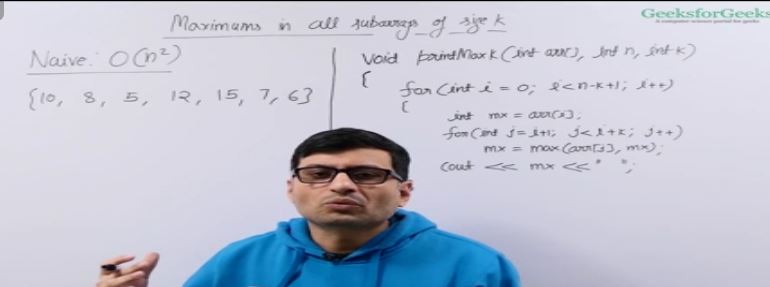 Maximums in all subarrays of size k
GeeksforGeeks
A computer science portal for geeks
Naive: O(n²)
{10, 8, 5, 12, 15, 7, 6}
void printMaxK(int arr[], int n, int k)
{
for(int i = 0; i<n-k+1; i++)
{
int mx = arr[i];
for(int j=i+1; j<i+k; j++)
mx = max(arr[j], mx);
cout << mx << " ";